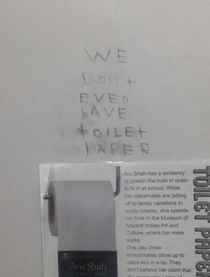 WE
DON'T
EVEN
HAVE
TOILET
PAPER
Aru Shah has a tendency
to stretch the truth in order
to fit in at school. While
her classmates are jetting
off to family vacations in
exotic locales, she spends
her time in the Museum of
Ancient Indian Art and
Culture, where her mom
works.
One day, three
schoolmates show up to
catch Aru in a lie. They
don't believe her claim that
Aru Shah
TOILET PAPER